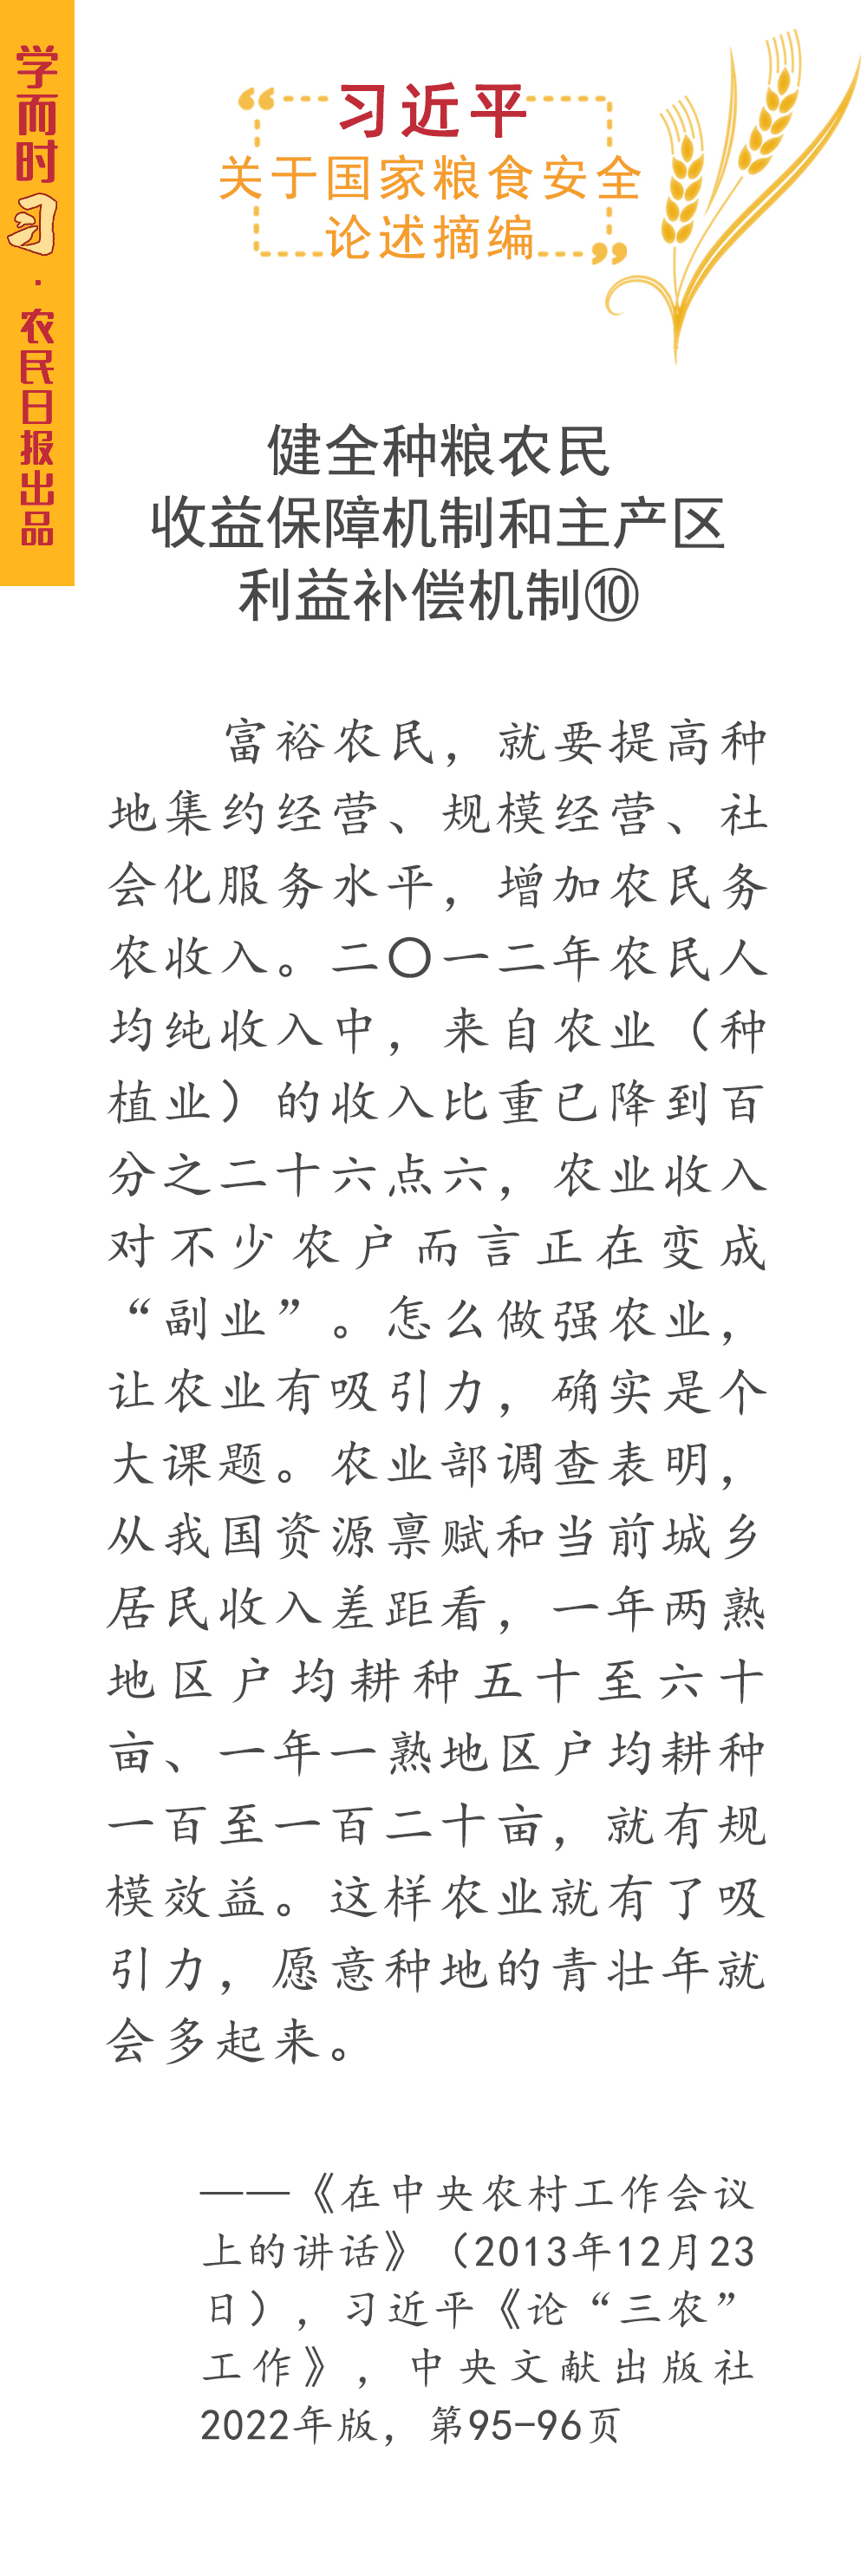 学而时习·农民日报出品
“习近平
关于国家粮食安全
论述摘编”
健全种粮农民
收益保障机制和主产区
利益补偿机制⑩
富裕农民，就要提高种
地集约经营、规模经营、社
会化服务水平，增加农民务
农收入。二〇一二年农民人
均纯收入中，来自农业（种
植业）的收入比重已降到百
分之二十六点六，农业收入
对不少农户而言正在变成
“副业”。怎么做强农业，
让农业有吸引力，确实是个
大课题。农业部调查表明，
从我国资源禀赋和当前城乡
居民收入差距看，一年两熟
地区户均耕种五十至六十
亩、一年一熟地区户均耕种
一百至一百二十亩，就有规
模效益。这样农业就有了吸
引力，愿意种地的青壮年就
会多起来。
——《在中央农村工作会议
上的讲话》（2013年12月23
日），习近平《论“三农”
工作》，中央文献出版社
2022年版，第95-96页